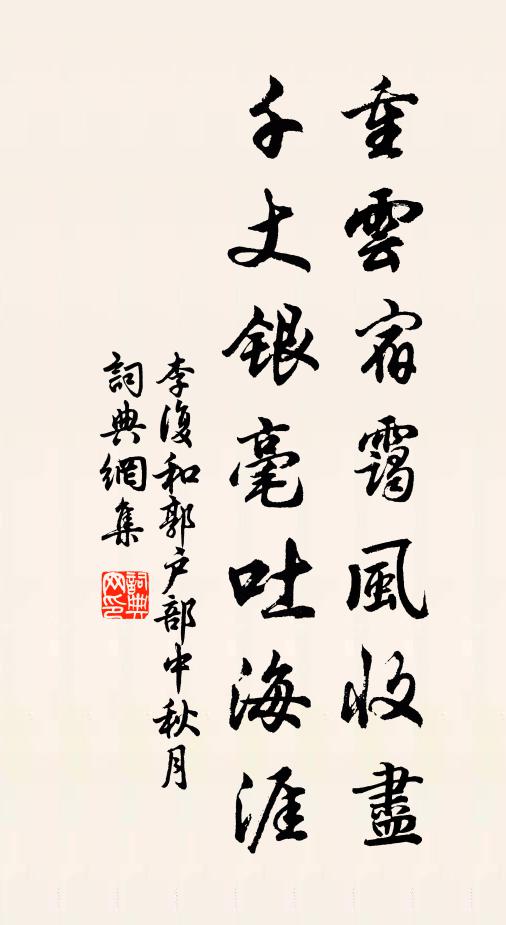 重雲宿靄風收盡
千丈銀毫吐海涯
李復和郭戶部中秋月
詞典網集
詞典网印